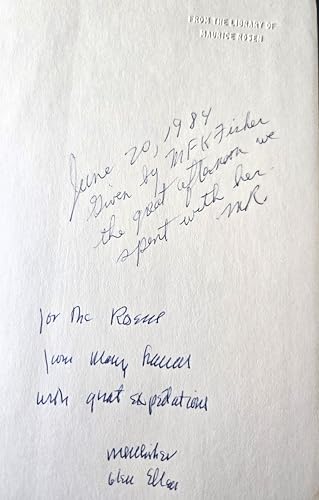 FROM THE LIBRARY OF
MAURICE ROSEN
June 20, 1984
Given by MFK Fisher
the great afternoon we
spent with her.
MR
for the Rosens
from Mary Frances
with great expectations
MFK Fisher
Glen Ellen